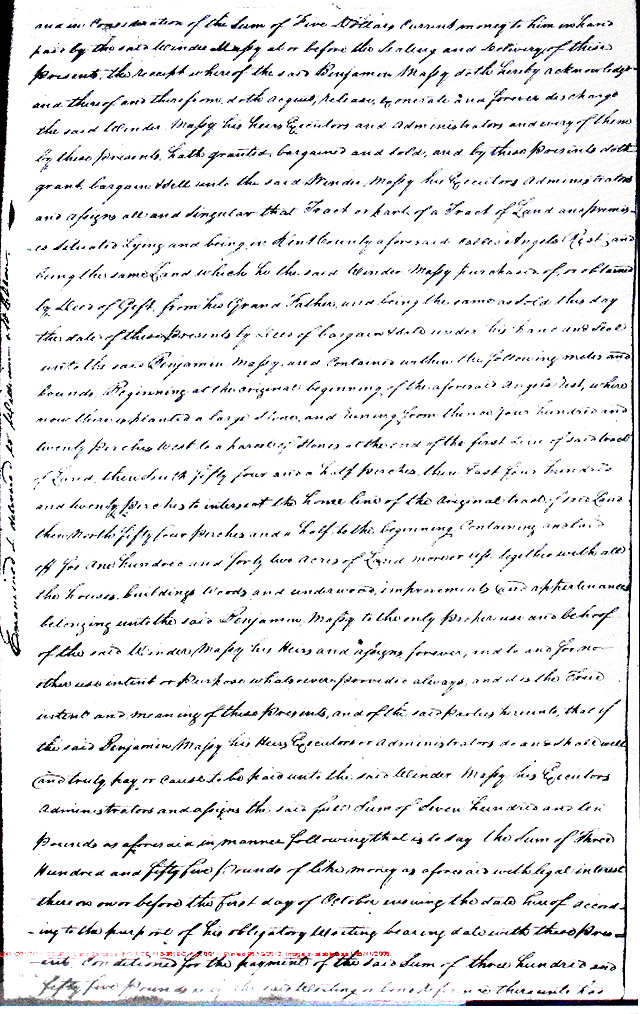 and in Consideration of the Sum of Five Dollars Current money to him in hand
paid by the said Winder Massy at or before the Sealing and Delivery of these
Presents, the receipt whereof the said Benjamin Massy doth hereby acknowledge
and thereof and therefrom, doth acquit, release, exonerate and forever discharge
the said Winder Massy his Heirs Executors and Administrators and every of them
by these presents, hath granted, bargained and sold, and by these Presents doth
grant, bargain & Sell unto the said Winder Massy his Executors Administrators
and assigns all and Singular that Tract or part of a Tract of Land and premis-
-es Situated Lying and being in Kent County aforesaid called Angels Rest, and
being the same Land which he the said Winder Massy purchased of, or obtained
by Deed of Gift, from his Grand Father, and being the same as sold this day
the date of these presents by Deed of bargain & Sale under his hand and Seal
unto the said Benjamin Massy, and Contained within the following metes and
bounds. Beginning at the original beginning of the aforesaid Angels Rest, where
now there is planted a large Stone, and runing from thence four hundred and
twenty Perches West to a parcel of Stones at the end of the first Line of said tract
of Land, then South fifty four and a half Perches, then East four hundred
and twenty Perches to intersect the home line of the Original tract of said Land
then North fifty four Perches and a half to the beginning, Containing and laid
off for One hundred and forty two Acres of Land more or less, together with all
the houses, buildings Woods and underwood, improvements and appertenances
belonging unto the said Benjamin Massy to the only Proper use and behoof
of the said Winder Massy his Heirs and assigns forever, and to and for no
other use intent or Purpose whatsoever, provided always, and it is the True
intent and meaning of these Presents, and of the said parties hereunto, that if
the said Benjamin Massy his Heirs Executors or Administrators do and shall well
and truly pay or cause to be paid unto the said Winder Massy his Executors
Administrators and assigns the said full Sum of Seven hundred and ten
Pounds as aforesaid in manner following that is to say the Sum of Three
Hundred and fifty five Pounds of like money as aforesaid with legal interest
thereon on or before the First day of October ensuing the date hereof accord-
-ing to the purport of his obligatory Writing bearing date with these Pres-
-ents Conditioned for the payment of the said Sum of three hundred and
fifty five Pounds
Examined & delivered to